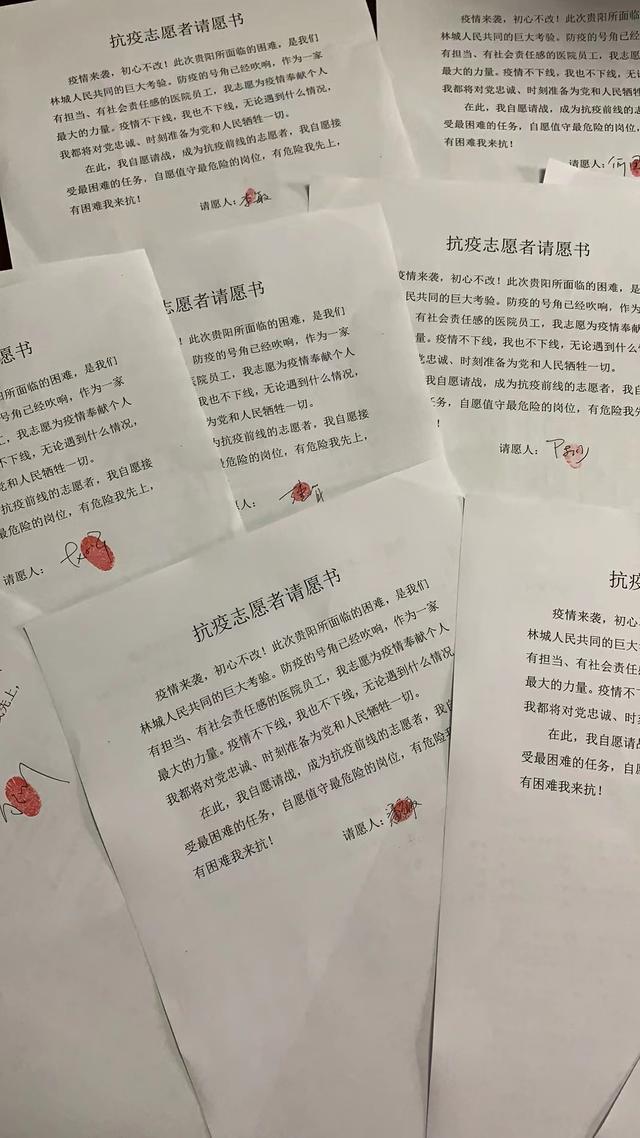 抗疫志愿者请愿书
疫情来袭，初心不改！此次贵阳所面临的困难，是我们
林城人民共同的巨大考验。防疫的号角已经吹响，作为一家
有担当、有社会责任感的医院员工，我志愿为疫情奉献个人
最大的力量。疫情不下线，我也不下线，无论遇到什么情况，
我都将对党忠诚、时刻准备为党和人民牺牲一切。
在此，我自愿请战，成为抗疫前线的志愿者，我自愿接
受最困难的任务，自愿值守最危险的岗位，有危险我先上，
有困难我来抗！
请愿人：李敏
疫情来袭，初心不改！此次贵阳所面临的困
林城人民共同的巨大考验。防疫的号角已经吹响
有担当、有社会责任感的医院员工，我志愿为疫
最大的力量。疫情不下线，我也不下线，无论遇
我都将对党忠诚、时刻准备为党和人民牺牲
在此，我自愿请战，成为抗疫前线的志
受最困难的任务，自愿值守最危险的岗位，
有困难我来抗！
请愿人：
抗疫志愿者请愿书
疫情来袭，初心不改！此次贵阳所面临的困难，是
人民共同的巨大考验。防疫的号角已经吹响，作为
、有社会责任感的医院员工，我志愿为疫情奉献
量。疫情不下线，我也不下线，无论遇到什么情
党忠诚、时刻准备为党和人民牺牲一切。
我自愿请战，成为抗疫前线的志愿者，我自
任务，自愿值守最危险的岗位，有危险我先
！
请愿人：
志愿者请愿书
！此次贵阳所面临的困难，是我们
防疫的号角已经吹响，作为一家
医院员工，我志愿为疫情奉献个人
我也不下线，无论遇到什么情况，
为党和人民牺牲一切。
为抗疫前线的志愿者，我自愿接
最危险的岗位，有危险我先上，
人：
愿书
阳所面临的困难，是我们
号角已经吹响，作为一家
工，我志愿为疫情奉献个人
不下线，无论遇到什么情况，
党和人民牺牲一切。
抗疫前线的志愿者，我自愿接
最危险的岗位，有危险我先上，
请愿人：
先上，
抗疫志愿者请愿书
疫情来袭，初心不改！此次贵阳所面临的困难，是我们
林城人民共同的巨大考验。防疫的号角已经吹响，作为一家
有担当、有社会责任感的医院员工，我志愿为疫情奉献个人
最大的力量。疫情不下线，我也不下线，无论遇到什么情况
我都将对党忠诚、时刻准备为党和人民牺牲一切。
在此，我自愿请战，成为抗疫前线的志愿者，我自
受最困难的任务，自愿值守最危险的岗位，有危险我
有困难我来抗！
请愿人：
抗
疫情来袭，初心
林城人民共同的巨大
有担当、有社会责任
最大的力量。疫情不
我都将对党忠诚、时刻
在此，我自愿请战
受最困难的任务，自愿
有困难我来抗！